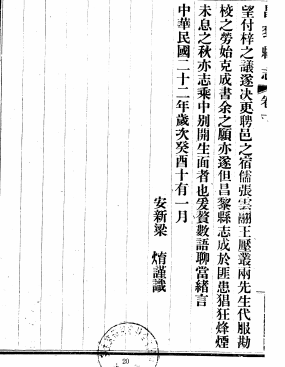 昌黎縣志 卷
望付梓之議遂決更聘邑之宿儒張雲翮王壓叢兩先生代服勘
校之勞始克成書余之願亦遂但昌黎縣志成於匪患猖狂烽煙
未息之秋亦志乘中别開生面者也爰贅數語聊當緒言
中華民國二十二年歲次癸酉十有一月
安新梁 焴謹識
20